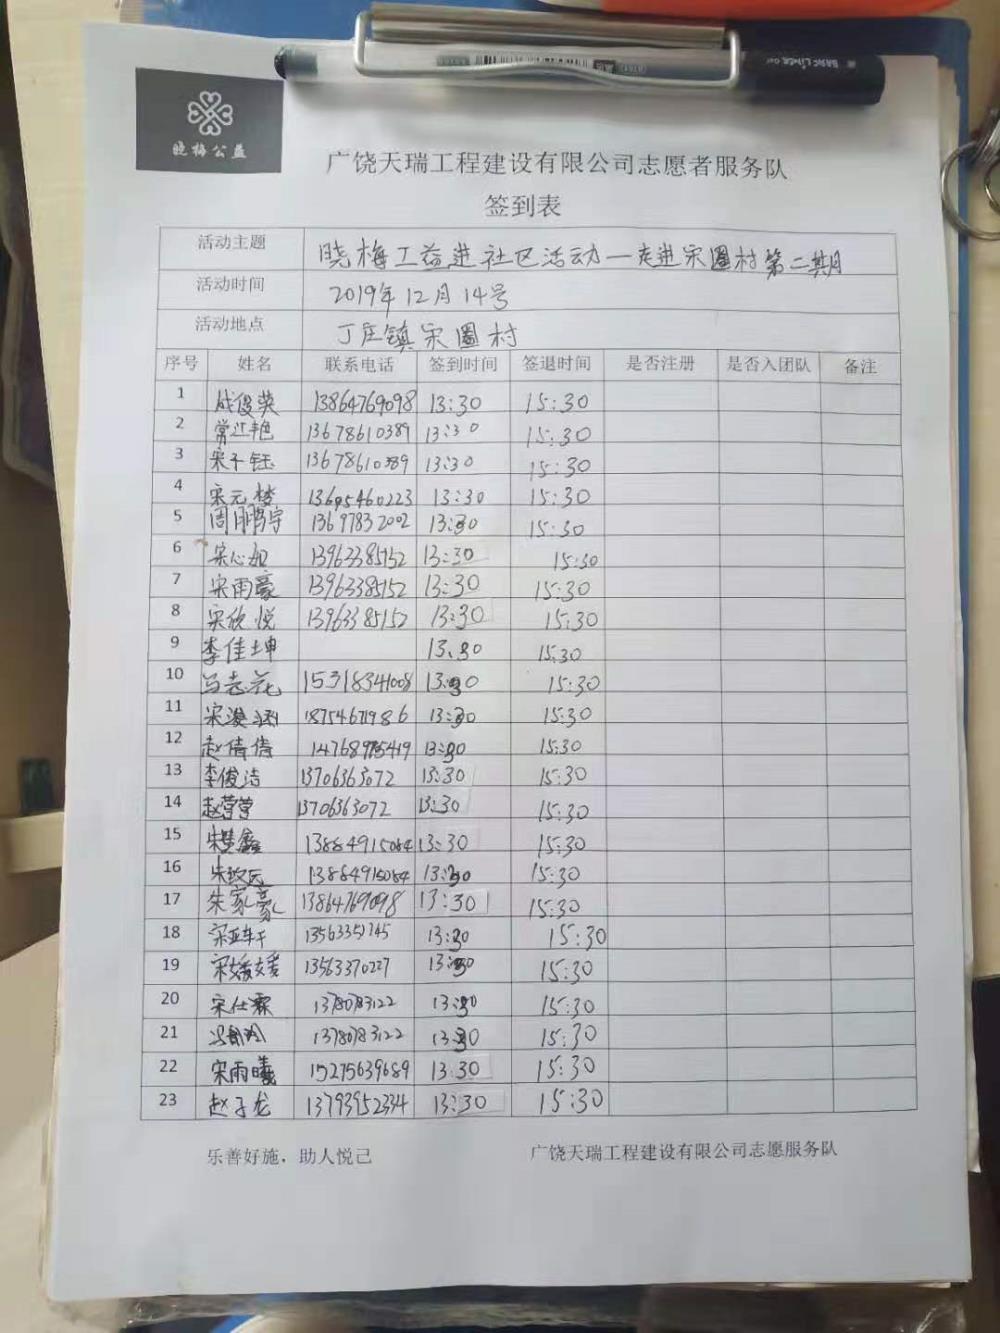 晓梅公益
广饶天瑞工程建设有限公司志愿者服务队
签到表
活动主题 晓梅工益进社区活动—走进宋圈村第二期
活动时间 2019年12月14号
活动地点 丁庄镇宋圈村
序号 姓名 联系电话 签到时间 签退时间 是否注册 是否入团队 备注
1 成俊英 13864769098 13:30 15:30
2 13678610389 13:30 15:30
3 宋子钰 13678610389 13:30 15:30
4 宋元楼 13695460223 13:30 15:30
5 周鹏宇 13697832002 13:30 15:30
6 宋心如 13963385152 13:30 15:30
7 宋雨豪 13963385152 13:30 15:30
8 宋欣悦 13963385152 13:30 15:30
9 李佳坤 13:30 15:30
10 马志花 15318341008 13:30 15:30
11 18754671986 13:30 15:30
12 赵倩倩 13:30 15:30
13 李俊洁 13706363072 13:30 15:30
14 赵营营 13706363072 13:30 15:30
15 13884915084 13:30 15:30
16 13884915084 13:30 15:30
17 朱家豪 13864769098 13:30 15:30
18 宋亚轩 13563351745 13:30 15:30
19 宋媛媛 13563370227 13:30 15:30
20 宋仕霖 1378783122 13:30 15:30
21 1378783122 13:30 15:30
22 宋雨曦 15275639689 13:30 15:30
23 赵子龙 13793952334 13:30 15:30
乐善好施，助人悦己 广饶天瑞工程建设有限公司志愿服务队